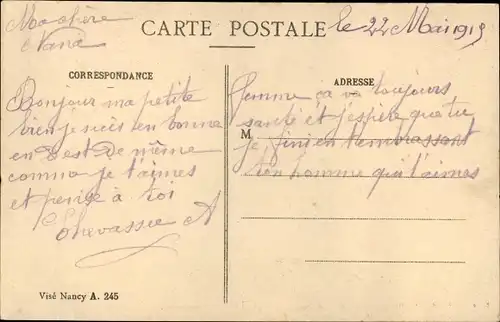 CARTE POSTALE
Ma chère
Nana
le 22 Mai 1915
CORRESPONDANCE
ADRESSE
Bonjour ma petite
femme ça va toujours
bien je suis en bonne
santé et j'espère que tu
en est de même
M
je fini en t'embrassant
comme je t'aimes
ton homme qui t'aimes
et pense à toi
Chevassu A
Visé Nancy A. 245